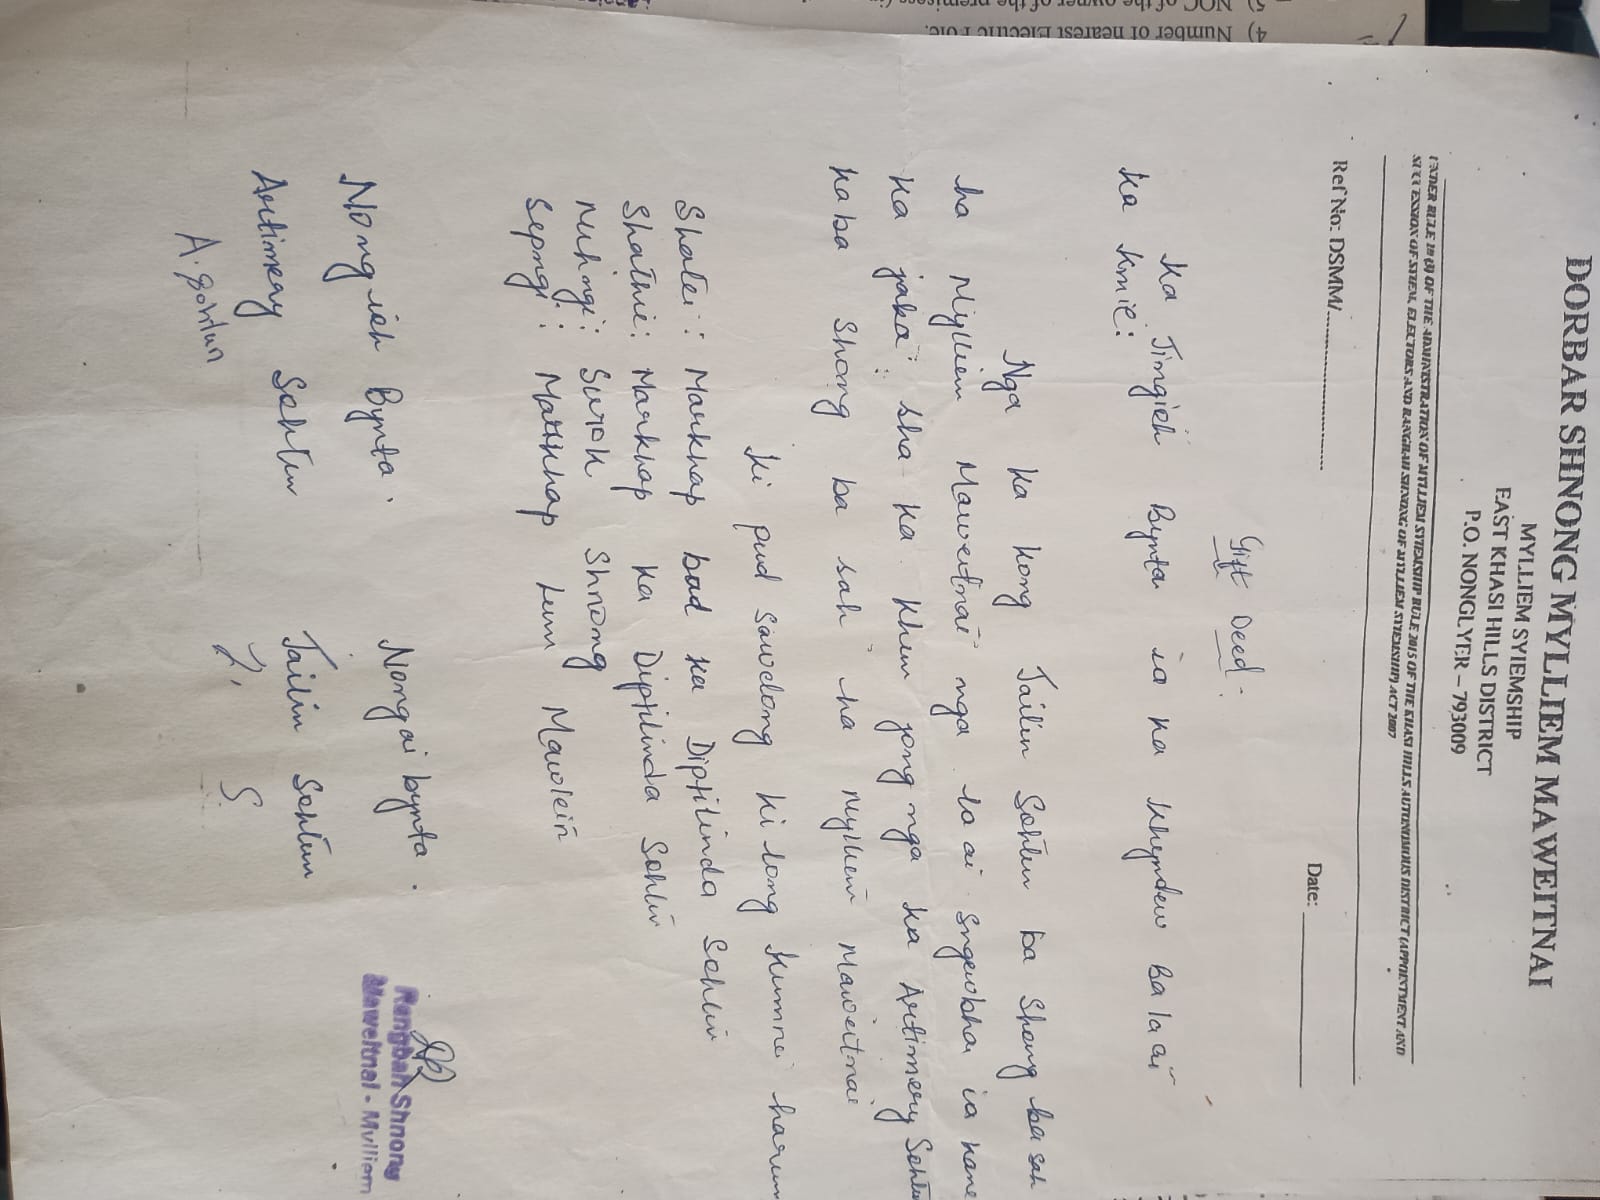 DORBAR SHNONG MYLLIEM MAWEITNAI
MYLLIEM SYIEMSHIP
EAST KHASI HILLS DISTRICT
P.O. NONGLYER – 793009
UNDER RULE 10 (3) OF THE ADMINISTRATION OF MYLLIEM SYIEMSHIP RULE 2015 OF THE KHASI HILLS AUTONOMOUS DISTRICT (APPOINTMENT AND
SUCCESSION OF SYIEM, ELECTORS AND RANGBAH SHNONG OF MYLLIEM SYIEMSHIP) ACT 2007
Ref No: DSMM/........................
Date: ____________
Gift Deed:
Ka Jingïeh Bynta ïa ka khyndew Ba la aï
ka kmie:
Nga ka kong Tailin Sohtun ba shong ba sah
ha Mylliem Maweitnai nga la ai sngewbha ia kane
ka jaka: sha ka khun jong nga ka Artimery Sohtun
kaba shong ba sah ha Myllem Maweitnai
Ki pud sawdong ki long kumne harum
Shatei: Markhap bad ka Diptilinda Sohtun
Shathie: Markhap ka Diptilinda Sohtun
Mihngi: Surok Shnong
Sepngi: Markhap Lum Mawlein
Nongïoh Bynta. Nongai bynta.
Artimeay Sohtun Tailin Sohtun
A. Sohtun T. S.
Rangbah Shnong
Maweitnai - Mylliem
4) Number of nearest Electric Pole.
5) NOC of the owner of the premises